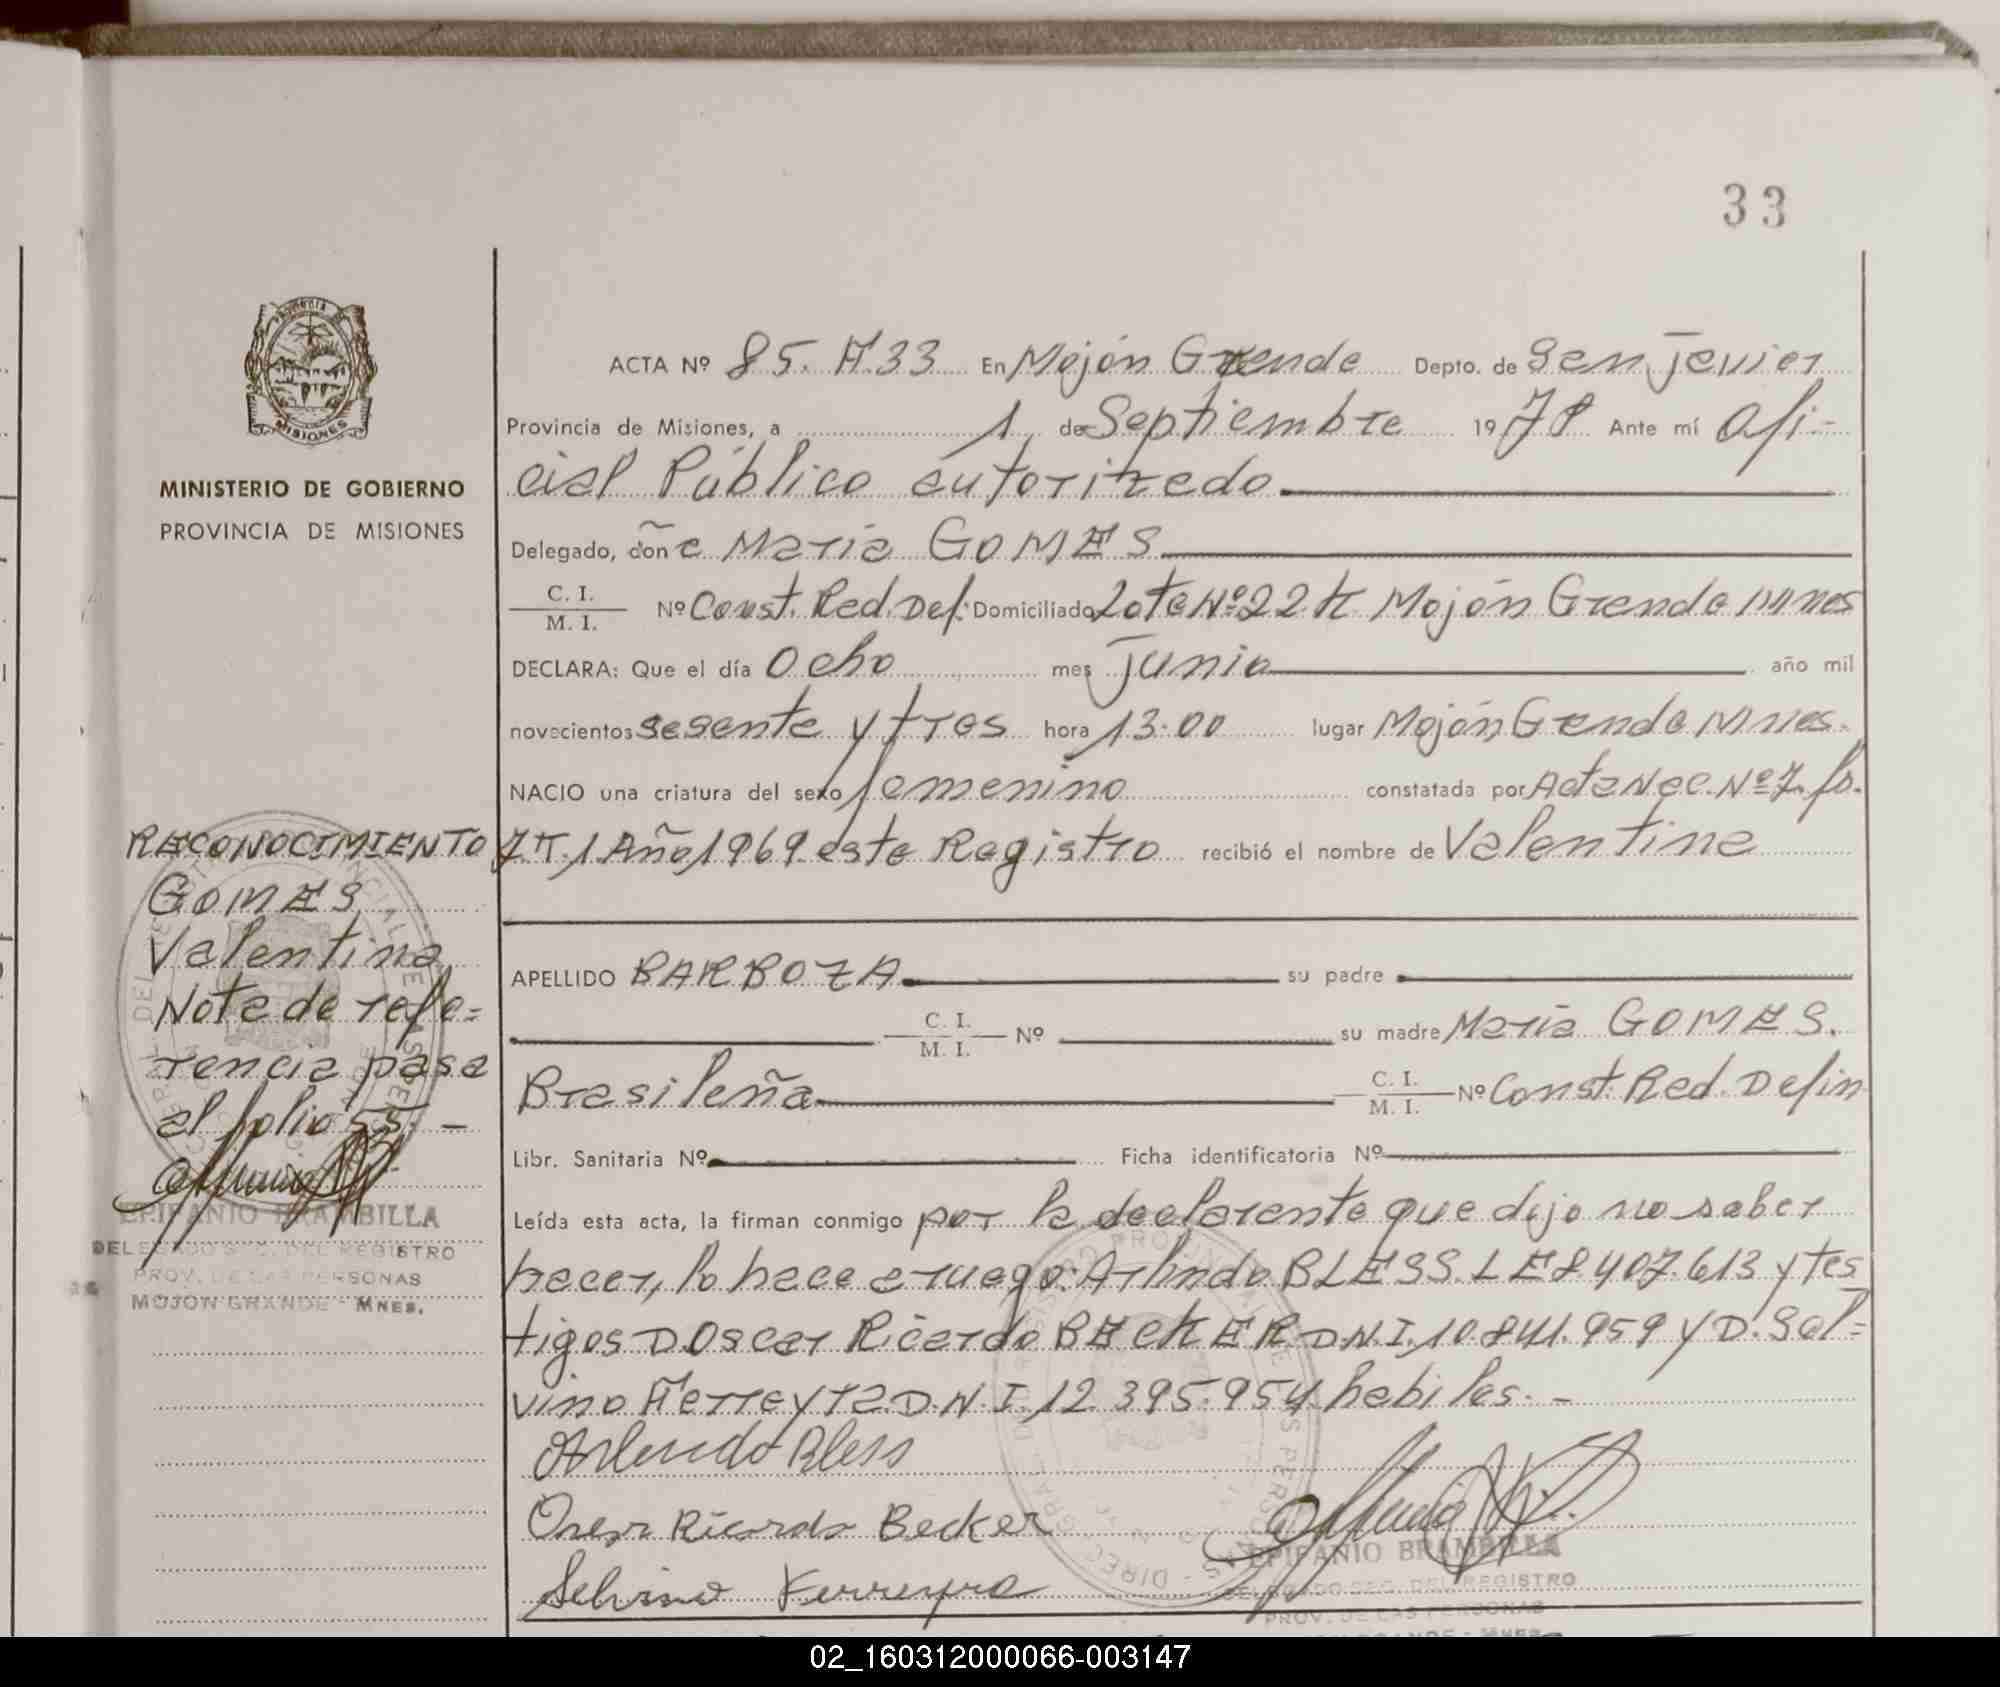 33
ACTA Nº 85. F.33 En Mojón Grande Depto. de San Javier
Provincia de Misiones, a 1 de Septiembre 1978 Ante mí Ofi-
cial Público autorizado
Delegado, doña María GOMES
C. I. / M. I. Nº Const. Red. Def. Domiciliado Lote Nº 22 K Mojón Grande Mnes
DECLARA: Que el día Ocho mes Junio año mil
novecientos sesenta y tres hora 13.00 lugar Mojón Grande Mnes.
NACIO una criatura del sexo femenino constatada por Acta Nac. Nº 7. fo.
7 T. 1 Año 1969 este Registro recibió el nombre de Valentina
APELLIDO BARBOZA su padre
C. I. / M. I. Nº su madre María GOMES.
Brasileña C. I. / M. I. Nº Const. Red. Defin
Libr. Sanitaria Nº Ficha identificatoria Nº
Leída esta acta, la firman conmigo por la declarante que dijo no saber
hacer, lo hace a ruego: Arlindo BLESS. LE 8.407.613 y tes
tigos D. Oscar Ricardo BECKER D.N.I. 10.841.959 y D. Sel=
vino Ferreyra D.N.I. 12.395.954 habiles. -
Arlindo Bless
Oscar Ricardo Becker
Selvino Ferreyra
EPIFANIO BRAMBILLA
DELEGADO SEC. DEL REGISTRO
PROV. DE LAS PERSONAS
MISIONES
MINISTERIO DE GOBIERNO
PROVINCIA DE MISIONES
RECONOCIMIENTO
GOMES
Valentina
Nota de refe=
rencia pasa
al folio 55. -
EPIFANIO BRAMBILLA
DELEGADO SEC. DEL REGISTRO
PROV. DE LAS PERSONAS
MOJON GRANDE - MNES.
02_160312000066-003147